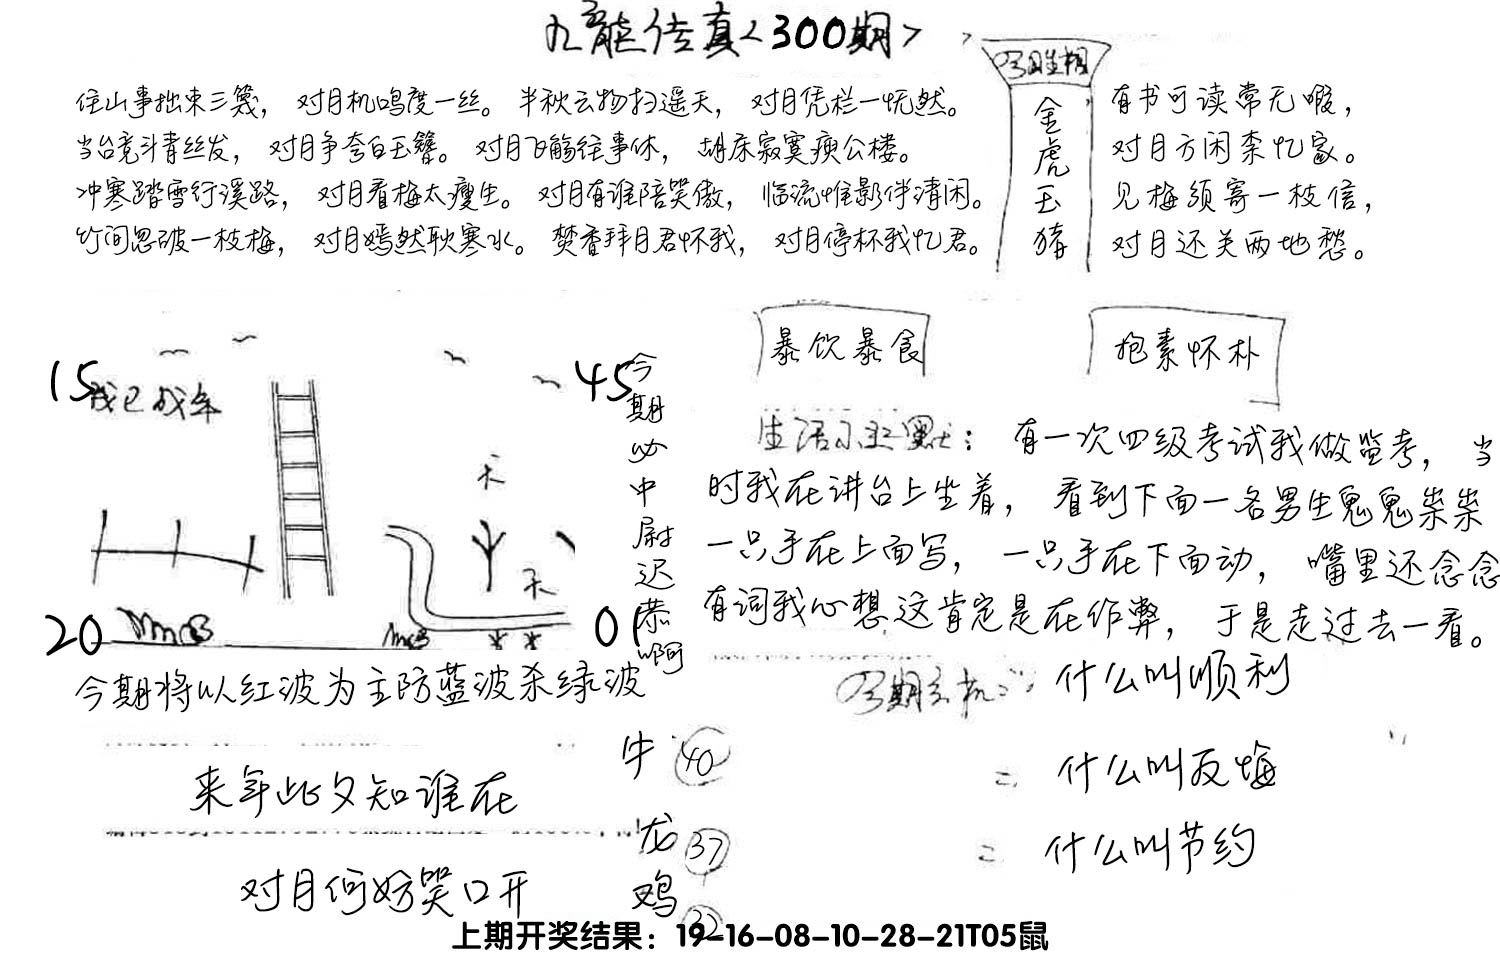 九龙传真<300期>
今期生相
金虎玉猪
住山事拙束三篾，对月机鸣度一丝。半秋云物扫遥天，对月凭栏一怃然。
当台竞斗青丝发，对月争夸白玉簪。对月飞觞往事休，胡床寂寞瘐公楼。
冲寒踏雪行溪路，对月看梅太瘦生。对月有谁陪笑傲，临流惟影伴清闲。
竹间忽破一枝梅，对月嫣然耿寒水。焚香拜月君怀我，对月停杯我忆君。
有书可读常无暇，
对月方闲柰忆家。
见梅须寄一枝信，
对月还关两地愁。
15
45
20
01
今期必中尉迟恭啊
今期将以红波为主防蓝波杀绿波
来年此夕知谁在
对月何妨笑口开
牛 40
龙 37
鸡 32
暴饮暴食
抱素怀朴
生活小幽默：有一次四级考试我做监考，当
时我在讲台上坐着，看到下面一名男生鬼鬼祟祟
一只手在上面写，一只手在下面动，嘴里还念念
有词我心想这肯定是在作弊，于是走过去一看。
今期玄机：什么叫顺利
= 什么叫反悔
= 什么叫节约
上期开奖结果：19-16-08-10-28-21T05鼠